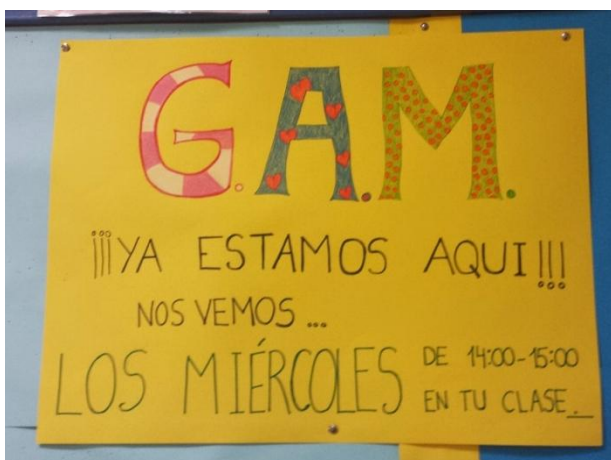 G.A.M.
¡¡¡YA ESTAMOS AQUI!!!
NOS VEMOS...
LOS MIÉRCOLES
DE 14:00-15:00
EN TU CLASE...